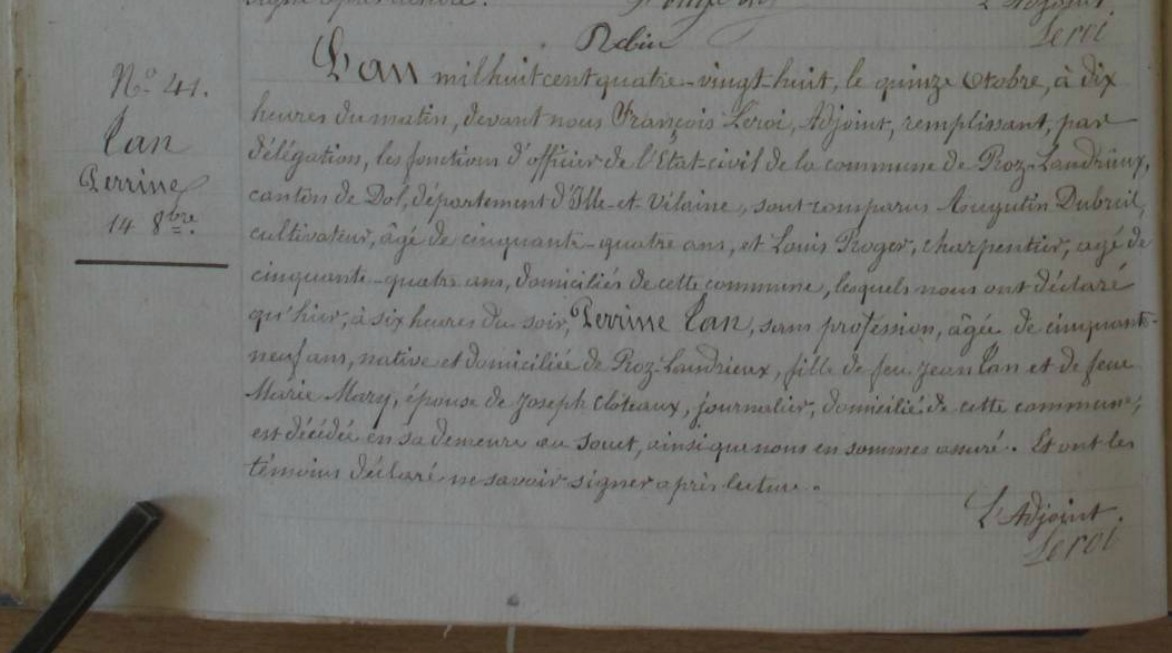 L'Adjoint
Robin
Leroi
Nº 41.
Lan
Perrine
14 8bre.
L'an mil huit cent quatre-vingt-huit, le quinze Octobre, à dix
heures du matin, devant nous François Leroi, Adjoint, remplissant, par
délégation, les fonctions d'officier de l'Etat-civil de la commune de Roz-Landrieux,
canton de Dol, département d'Ille-et-Vilaine, sont comparus Augutin Dubreil,
cultivateur, âgé de cinquante-quatre ans, et Louis Roger, charpentier, agé de
cinquante-quatre ans, domiciliés de cette commune, lesquels nous ont déclaré
qu'hier, à six heures du soir, Perrine Lan, sans profession, âgée de cinquante-
neuf ans, native et domiciliée de Roz-Landrieux, fille de feu Jean Lan et de feue
Marie Mary, épouse de Joseph Cloteaux, journalier, domicilié de cette commune,
est décédée en sa demeure au Souet, ainsi que nous en sommes assuré. Et ont les
témoins déclaré ne savoir signer après lecture.
L'Adjoint.
Leroi